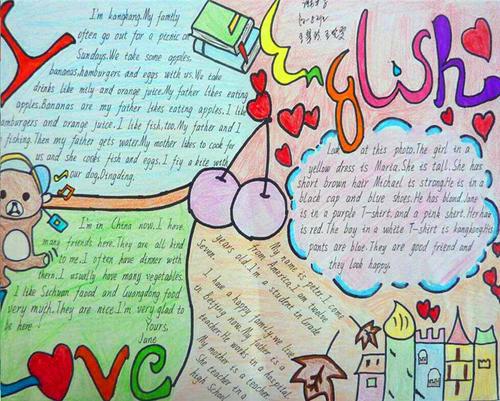 I LOVE
English
I'm kangkang.My family
often go out for a picnic on
Sundays.We take some apples,
bananas,hamburgers and eggs with us.We take
drinks like mily and orange juice.My father likes eating
apples.Bananas are my father likes eating apples.I like
hamburgers and orange juice.I like fish,too.My father and I
fishing.Then my father gets water.My mother likes to cook for
us and she cooks fish and eggs.I fiy a kite with
our dog,Dingding.
Look at this photo.The girl in a
yellow dress is Maria.She is tall.She has
short brown hair Michael is strong.He is in a
black cap and blue shoes.He has blond.Jane
is in a purple T-shirt.and a pink short.Her hair
is red.The boy in a white T-shirt is kangkang.His
pants are blue.They are good friend and
they look happy.
I'm in China now.I have
many friends here.They are all kind
to me.I often have dinner with
them.I usually have many vegetables.
I like Sichuan faood and Guangdong food
very myth.They are nice.I'm very glad to
be here!
Yours,
Jane
My name is peter.I come
from America.I am twelve
years old.I'm a student in Grade
Seven.
I have a happy family.we live
in Beijing now.My father is a
teacher.He works in a hospital.
My mother is a teacher.
She teacher in a
high School.